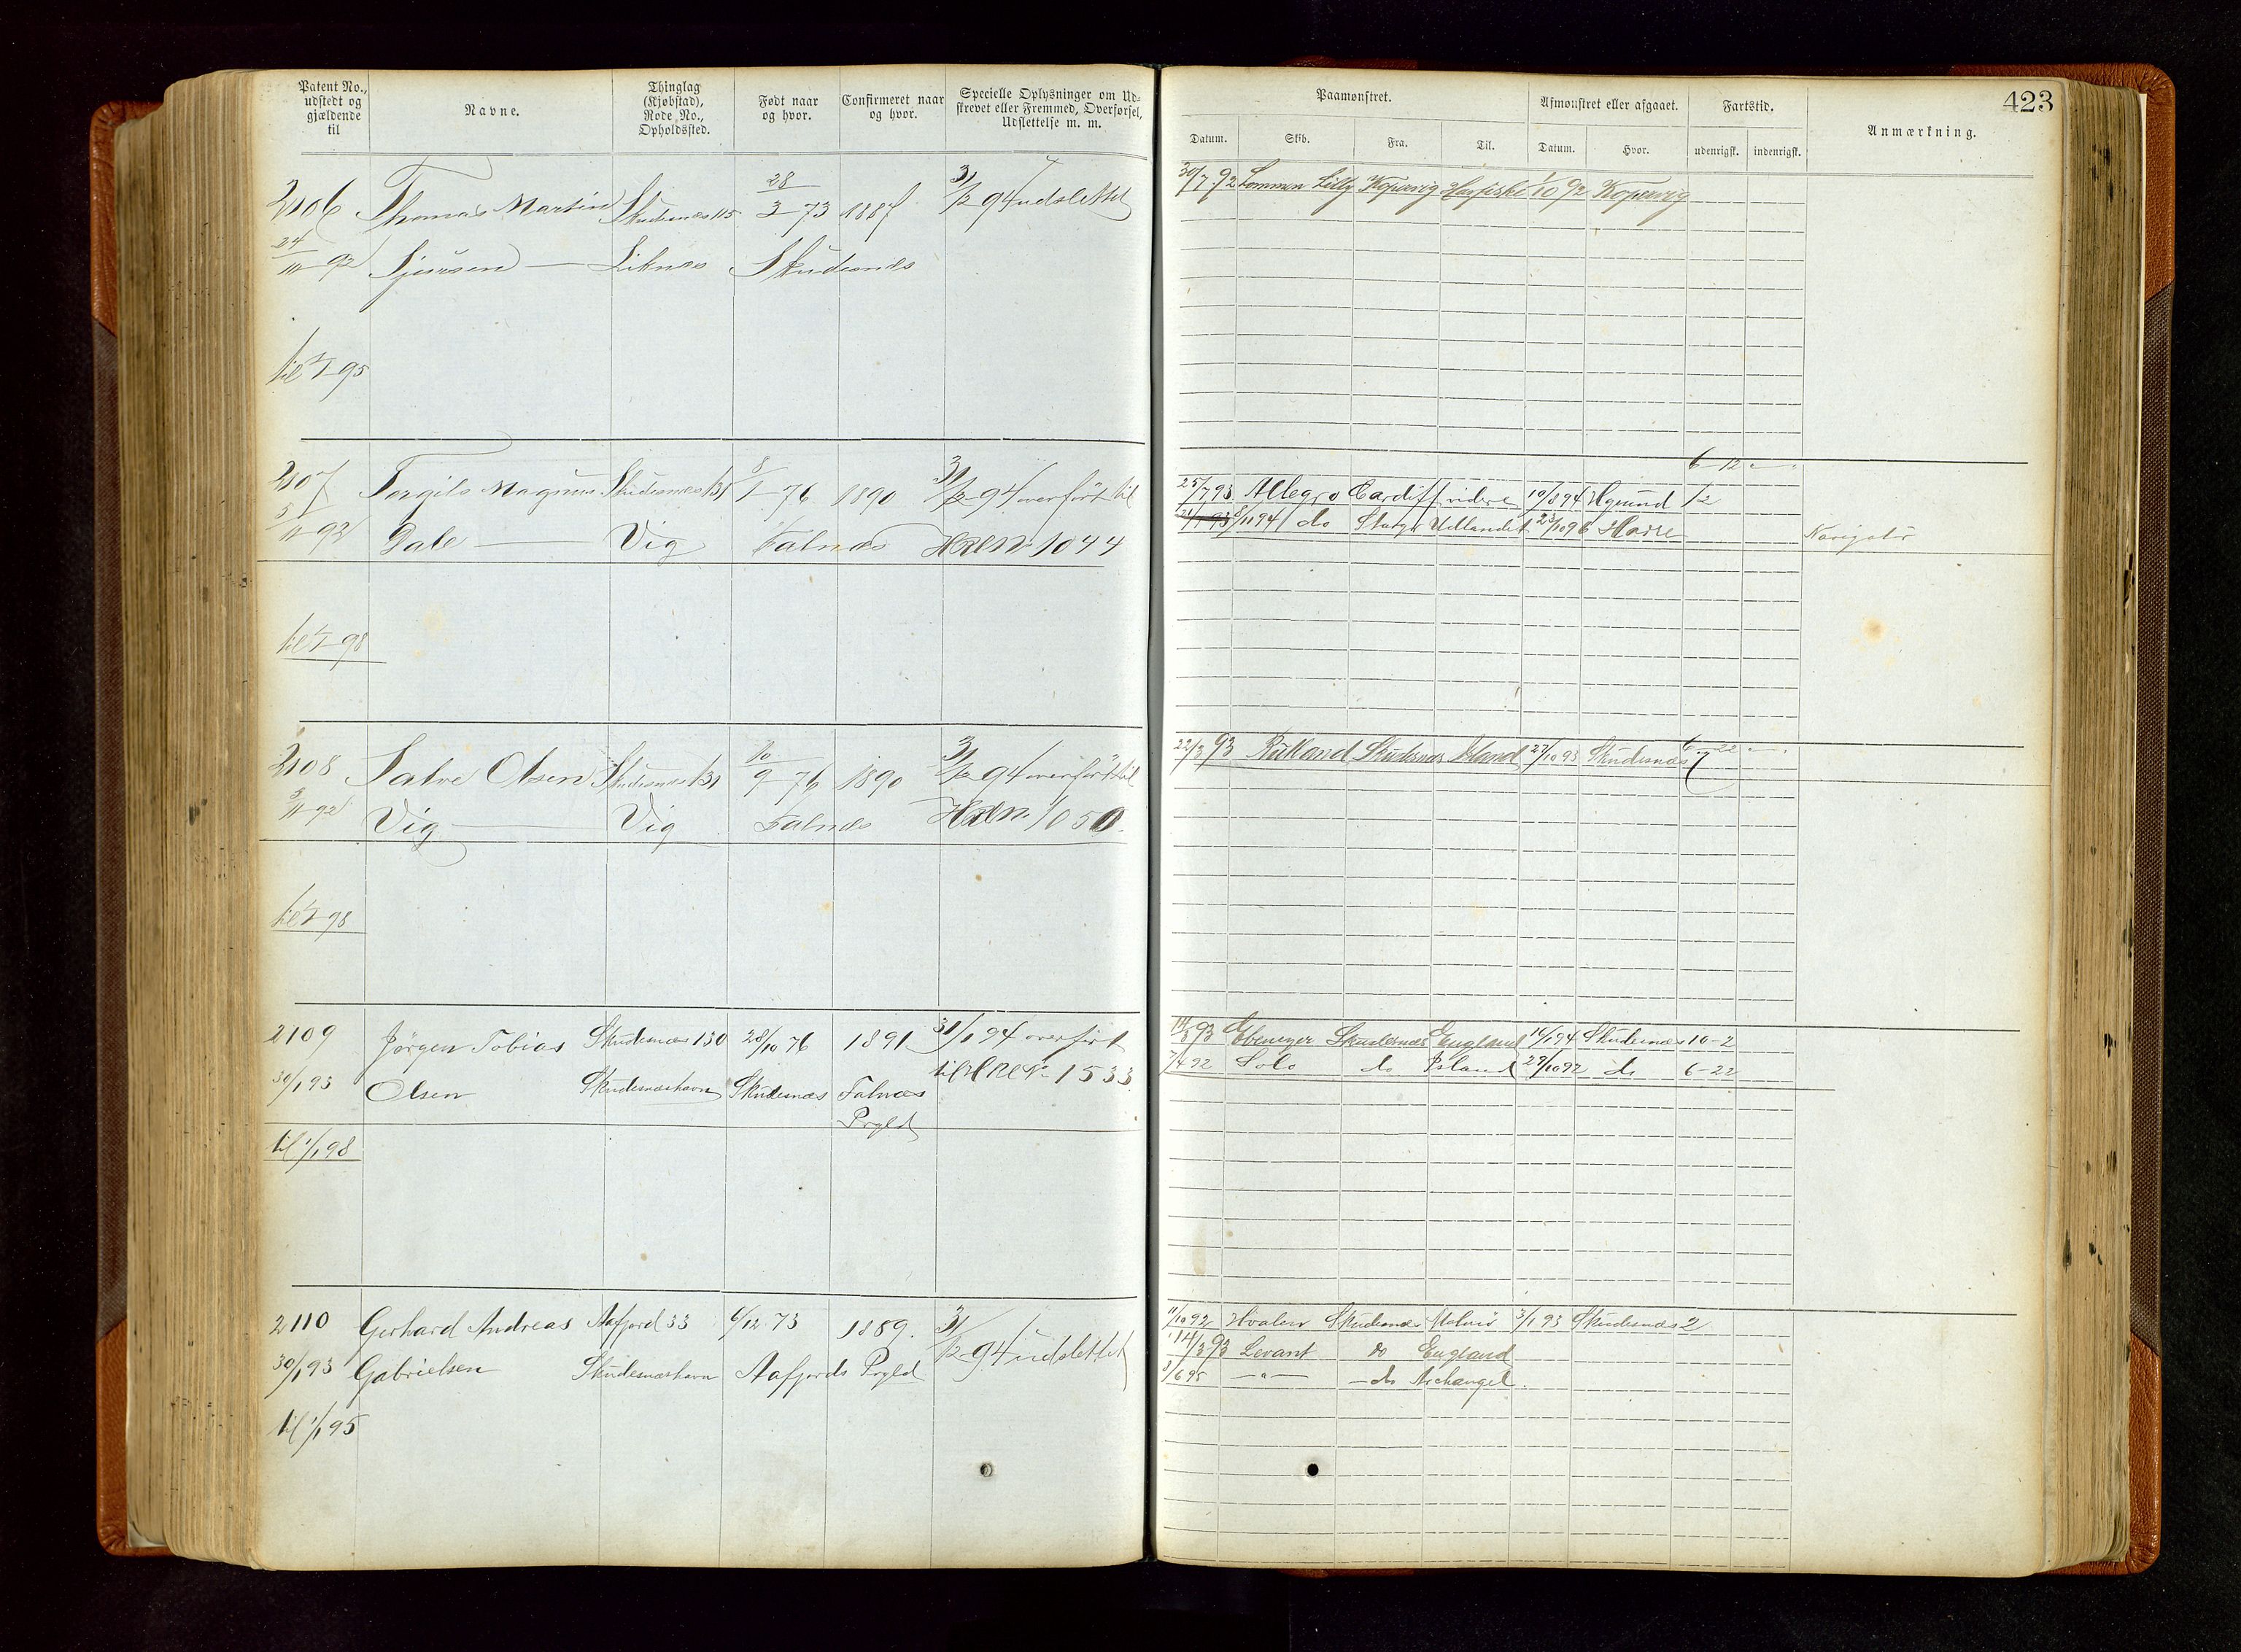 Patent No.,
udstedt og
gjældende
til
Navne.
Thinglag
(Kjøbstad),
Rode No.,
Opholdssted.
Født naar
og hvor.
Confirmeret naar
og hvor.
Specielle Oplysninger om Ud-
skrevet eller Fremmed, Overførsel,
Udslettelse m. m.
2106 Thomas Martin Skudesnes 115 28/3-73 1887 31/12 94 udslettet
24/10-92 Sjursen — Liknes Skudesnes
til 1/1-95
2107 Torgils Magnus Skudesnes 131 8/1-76 1890 31/12-94 overført til
5/11-92 Dale — Vig Falnæs 1044
til 1/1-98
2108 Salve Olsen Skudesnes 131 10/9-76 1890 31/12 94 overført til
5/11-92 Vig — Vig Falnæs 1050.
til 1/1-98
2109 Jørgen Tobias Skudesnæs 130 28/10 76 1891 31/1 94 overført
30/1 93 Olsen Skudesnæshavn Skudesnæs Falnæs til 1533
Prgld
til 1/1 98
2110 Gerhard Andreas Aafjord 33 6/12 73 1889. 31/12-94 udslettet
30/1 93 Gabrielsen Skudesnæshavn Aafjords Prgld
til 1/1 95
423
Paamønstret.
Afmønstret eller afgaaet.
Fartstid.
Anmærkning.
Datum.
Skib.
Fra.
Til.
Datum.
Hvor.
udenrigsk.
indenrigsk.
30/7 92 Lommen Lilly Kopervig Havfiske 1/10 92 Kopervig
6-12 "
25/7 93 Allegro Cardiff videre 10/8 94 Hgsund 12
8/11 94 do Udlandet 23/10 96 Havre
Navigatør
22/3 93 Rutland Skudesnæs Island 27/10 93 Skudesnæs 6-22
14/3 93 Ebenezer Skudesnæs England 16/1 94 Skudesnæs 10-2
7/4 92 Solo do Island 29/10 92 do 6-22
11/10 92 Hvalen Skudesnæs Malmø 3/1 93 Skudesnæs 2
14/3 93 Levant do England
8/6 95 — " — — do Archangel.